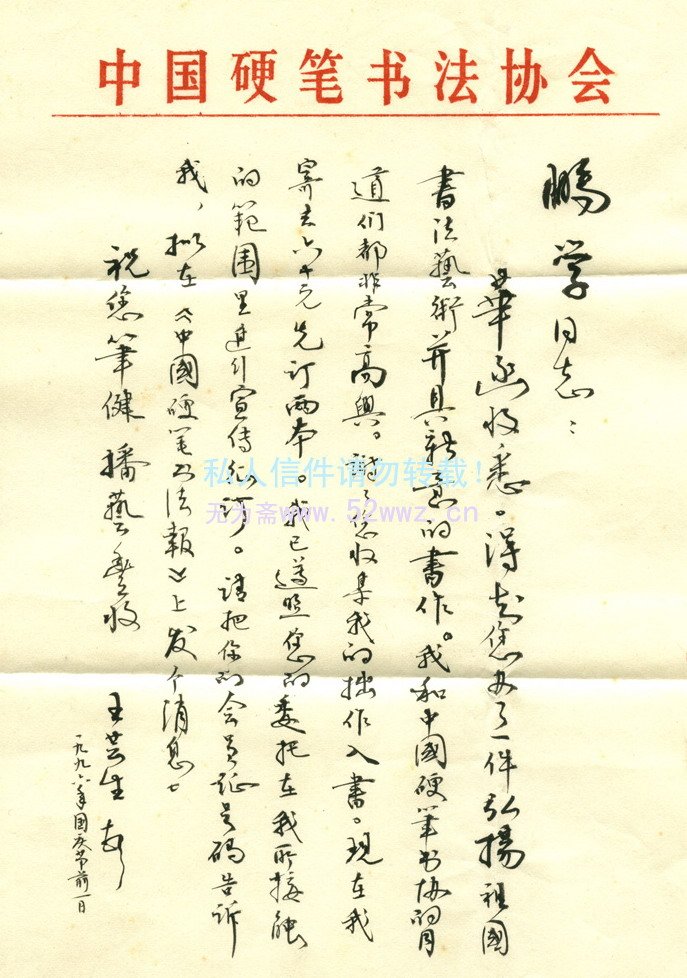 中国硬笔书法协会
鹏学同志：
華函收悉。得知您办了一件弘揚祖國
書法藝術并具新意的書作。我和中國硬筆书协的同
道们都非常高興。謝謝您收集我的拙作入書。现在我
寄去六十元先订两本。我已遵照您的委托在我所接触
的範围里進行宣传征订。请把你的会员证号码告诉
我，拟在《中國硬笔书法報》上发个消息。
祝您筆健播藝豐收
王芸生
一九九六年國庆节前一日
私人信件请勿转载！
无为斋www.52wwz.cn